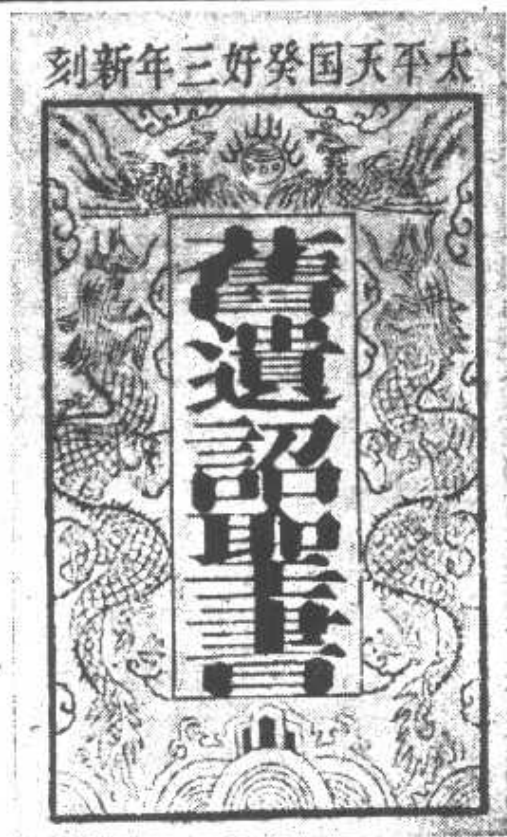 太平天国癸好三年新刻
舊遺詔聖書